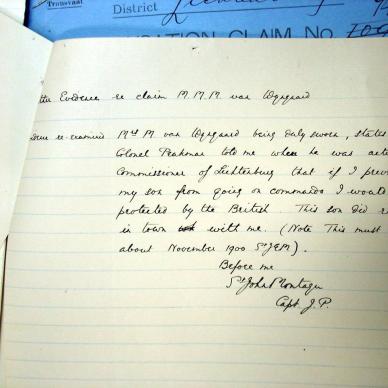 Transvaal
District Lichtenburg
CLAIM No
the Evidence re claim M.M.M. van Wyngaard
re-examined Mrs M van Wyngaard being duly sworn, states
Colonel Peakman told me when he was
Commissioner of Lichtenburg that if I
my son from going on commando I would
protected by the British. This son did
in town with me. (Note This must
about November 1900 St J.E.M).
Before me
St John Montagu
Capt J.P.